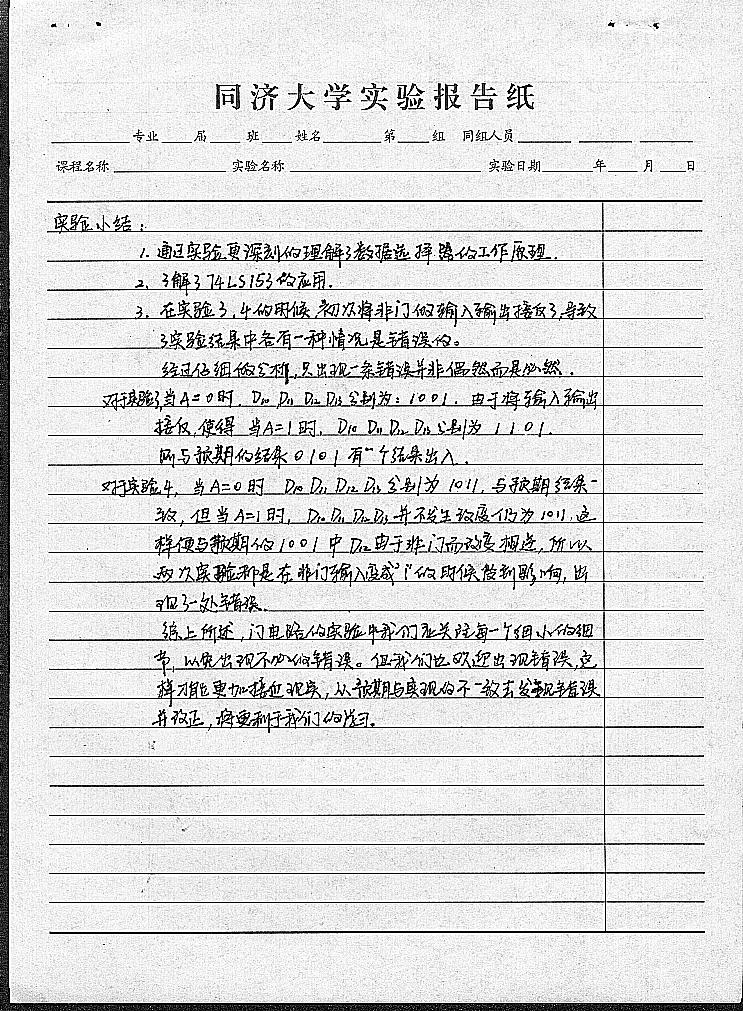 同济大学实验报告纸
专业 届 班 姓名 第 组 同组人员
课程名称 实验名称 实验日期 年 月 日
实验小结：
1. 通过实验更深刻的理解了数据选择器的工作原理.
2. 了解了74LS153的应用.
3. 在实验3,4的时候,初次将非门的输入输出接反了,导致
了实验结果中各有一种情况是错误的。
经过仔细的分析,只出现一条错误并非偶然而是必然.
对于实验3,当A=0时, D10 D11 D12 D13分别为：1001. 由于将输入输出
接反,使得 当A=1时, D10 D11 D12 D13分别为 1101.
则与预期的结果0101有一个结果出入.
对于实验4, 当A=0时 D10 D11 D12 D13分别为 1011, 与预期结果一
致, 但当A=1时, D10 D11 D12 D13并不发生改变仍为1011, 这
样便与预期的1001中D12由于非门而改变相违, 所以
两次实验都是在非门输入变成"1"的时候受到影响, 出
现了一处错误.
综上所述, 门电路的实验中我们应关注每一个细小的细
节, 以免出现不必要的错误。但我们也欢迎出现错误,这
样才能更加接近现实, 从预期与实现的不一致去发现错误
并改正, 将更利于我们的学习.